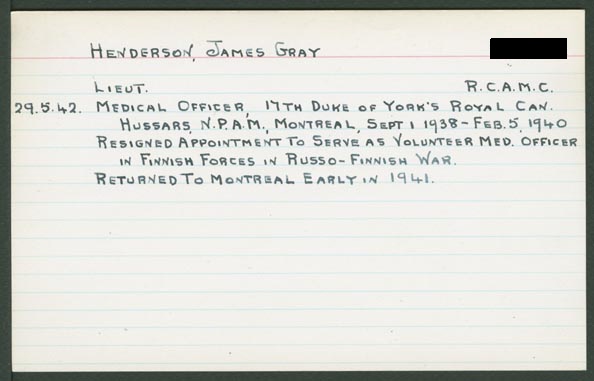 HENDERSON, JAMES GRAY
LIEUT. R.C.A.M.C.
29.5.42. MEDICAL OFFICER, 17TH DUKE OF YORK'S ROYAL CAN.
HUSSARS, N.P.A.M., MONTREAL, SEPT 1 1938 - FEB. 5, 1940
RESIGNED APPOINTMENT TO SERVE AS VOLUNTEER MED. OFFICER
IN FINNISH FORCES IN RUSSO-FINNISH WAR.
RETURNED TO MONTREAL EARLY IN 1941.